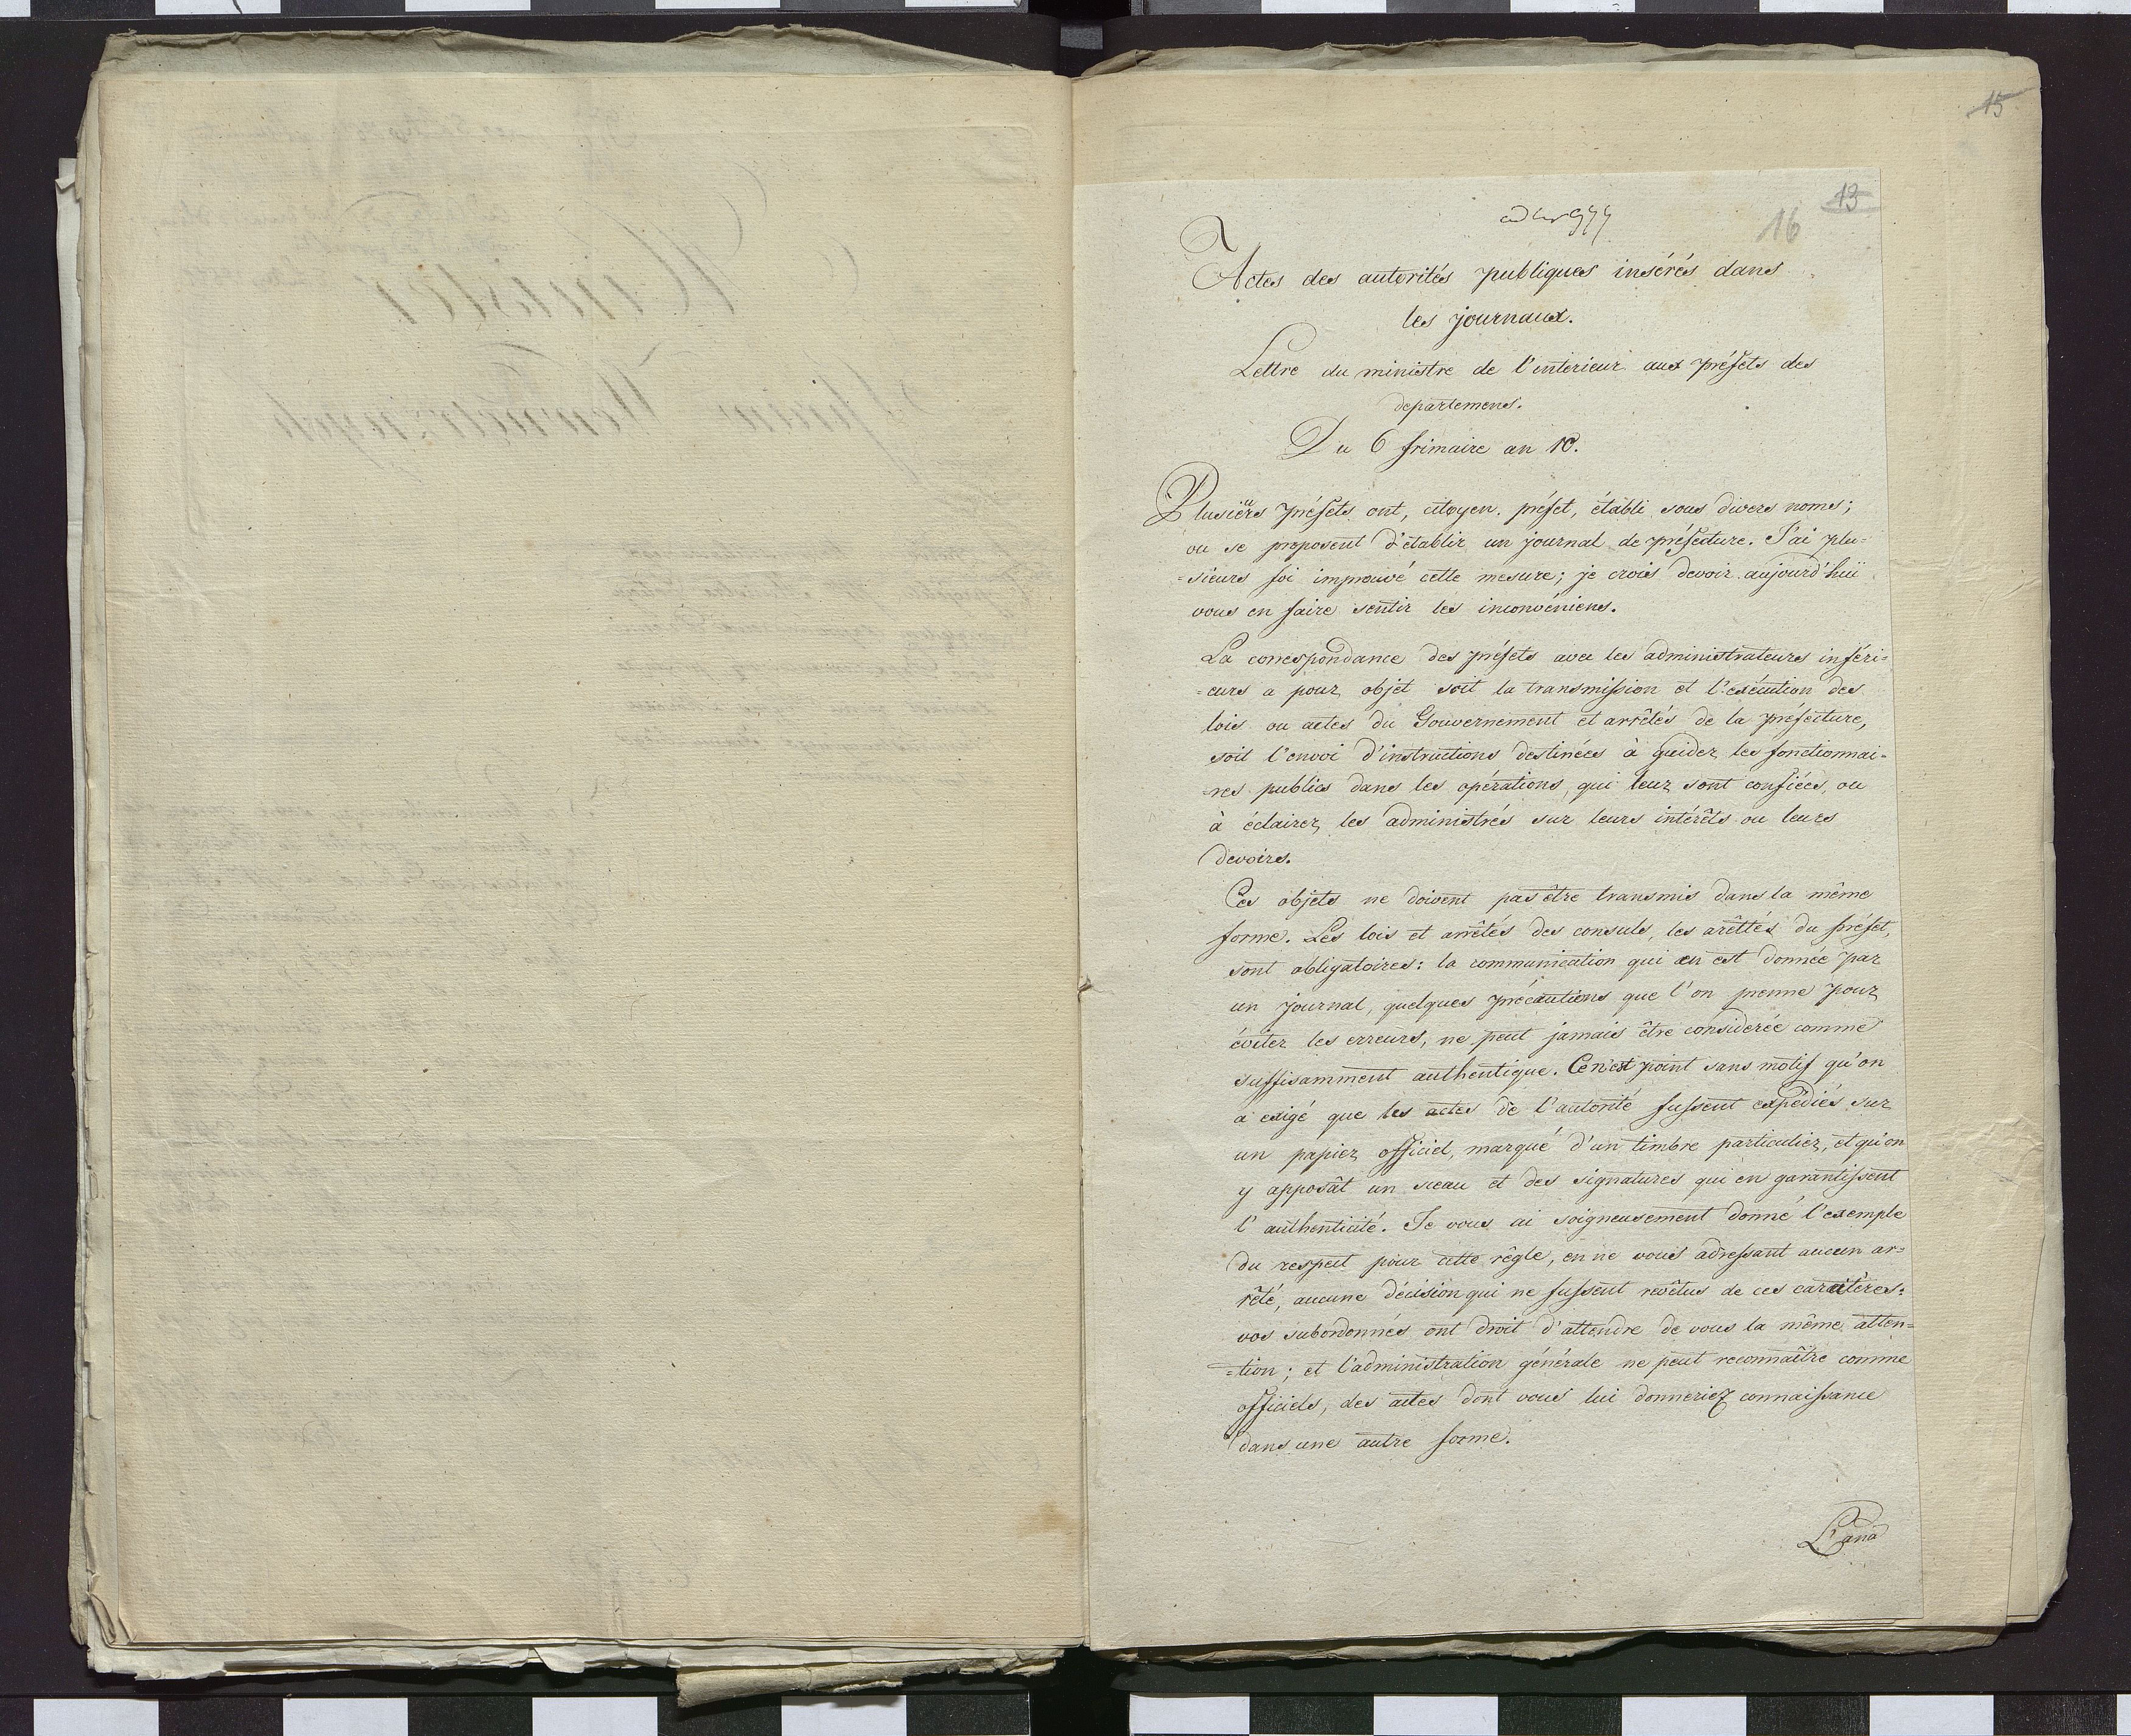 15
13
16
ad Nr 977
Actes des autorités publiques insérés dans
les journaux.
Lettre du ministre de l'interieur aux préfets des
departemens.
Du 6 frimaire an 10.
Plusieürs préfets ont, citoyen préfet, établi sous divers noms;
ou se proposent d'établir un journal de préfecture. J'ai plu-
-sieurs foi improuvé cette mesure; je crois devoir aujourd'huï
vous en faire sentir les inconvéniens.
La correspondance des préfets avec les administrateurs inféri=
=eurs a pour objet soit la transmission et l'exécution des
lois ou actes du Gouvernement et arrêtés de la préfecture,
soit l'envoi d'instructions destinées à guider les fonctionnai-
-res publics dans les opérations, qui leur sont confiées, ou
à éclairer les administrés sur leurs intérêts ou leurs
devoirs.
Ces objets ne doivent pas être transmis dans la même
forme. Les lois et arrêtés des consuls, les arêttés du préfet,
sont obligatoires: la communication qui en est donnée par
un journal, quelques précautions que l'on prenne pour
éviter les erreurs, ne peut jamais être considerée comme
suffisamment authentique. Ce n'est point sans motif qu'on
a exigé que les actes de l'autorité fussent expédiés sur
un papier officiel, marqué d'un timbre particulier, et qu'on
y apposât un sceau et des signatures qui en garantissent
l'authenticité. Je vous ai soigneusement donné l'exemple
du respect pour cette règle, en ne vous adressant aucun ar=
rêté, aucune décision qui ne fussent revêtus de ces caractères:
vos subordonnés ont droit d'attendre de vous la même atten=
=tion; et l'administration générale ne peut reconnaître comme
officiels, des actes dont vous lui donneriez connaissance
dans une autre forme.